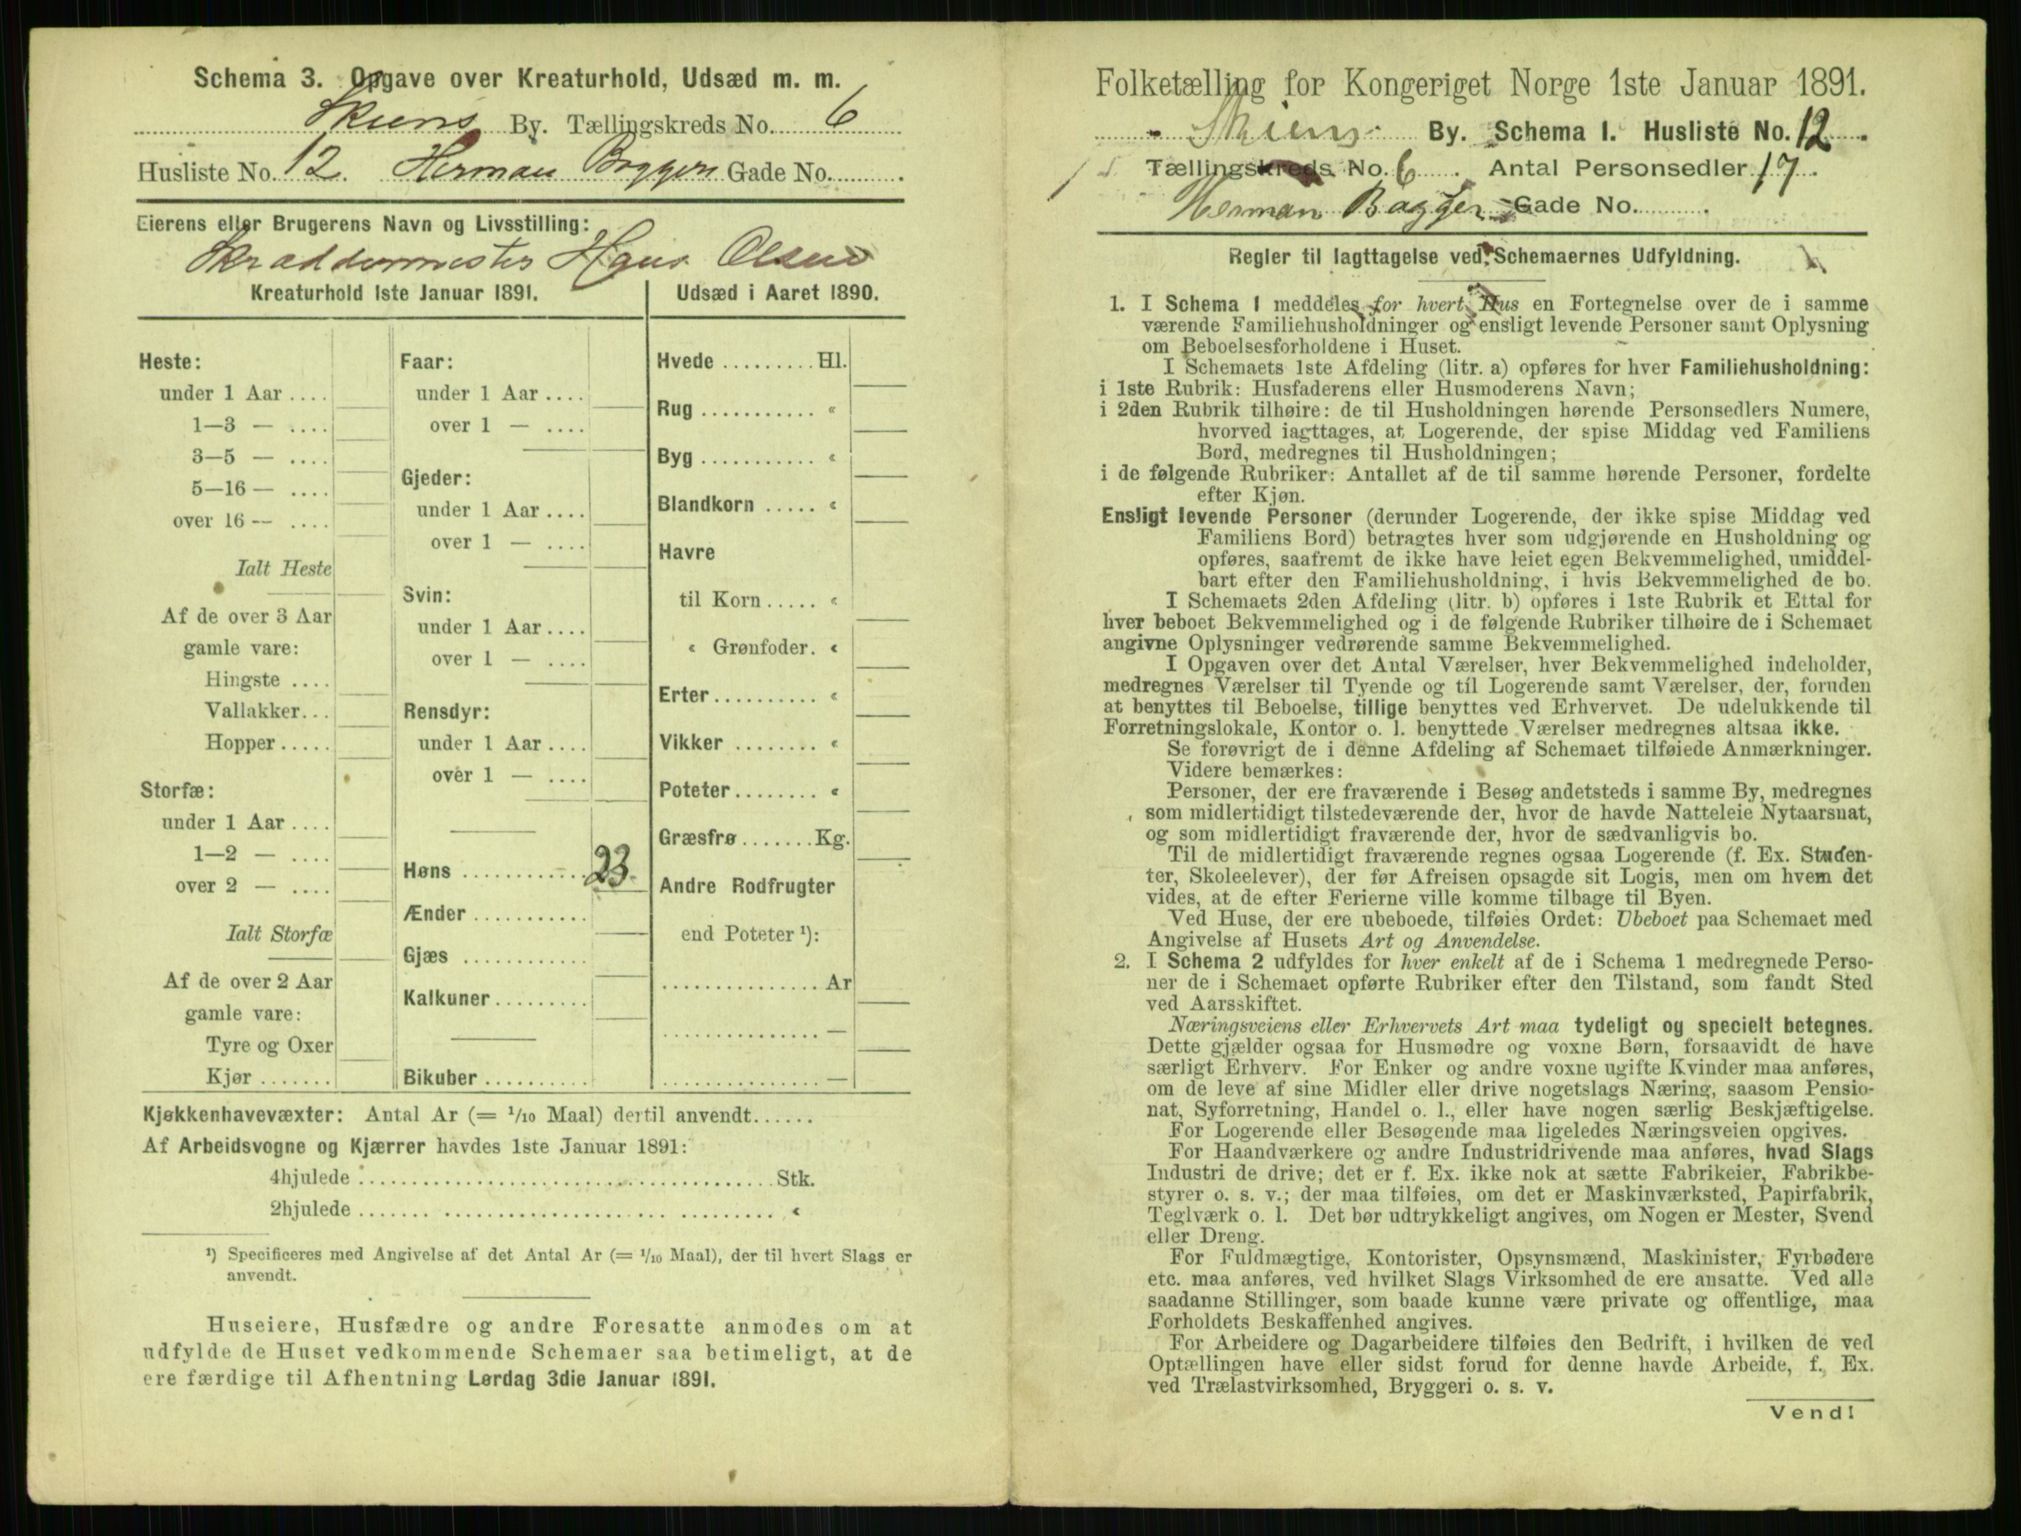 Schema 3. Opgave over Kreaturhold, Udsæd m. m.
Skiens By. Tællingskreds No. 6
Husliste No. 12. Herman Baggers Gade No.
Eierens eller Brugerens Navn og Livsstilling:
Skræddermester Hans Olsen
Kreaturhold 1ste Januar 1891.
Heste:
under 1 Aar ....
1—3 — ....
3—5 — ....
5—16 — ....
over 16 — ....
Ialt Heste
Af de over 3 Aar
gamle vare:
Hingste ....
Vallakker...
Hopper.....
Storfæ:
under 1 Aar ....
1—2 — ....
over 2 — ....
Ialt Storfæ
Af de over 2 Aar
gamle vare:
Tyre og Oxer
Kjør.......
Faar:
under 1 Aar ....
over 1 — ....
Gjeder:
under 1 Aar ....
over 1 — ....
Svin:
under 1 Aar ....
over 1 — ....
Rensdyr:
under 1 Aar ....
over 1 — ....
Høns ............ 23.
Ænder ...........
Gjæs ............
Kalkuner.........
Bikuber ..........
Udsæd i Aaret 1890.
Hvede ......... Hl.
Rug ........... «
Byg ........... «
Blandkorn ..... «
Havre
til Korn ..... «
« Grønfoder. «
Erter.......... «
Vikker ........ «
Poteter........ «
Græsfrø .......Kg.
Andre Rodfrugter
end Poteter ¹):
............... Ar
............... —
............... —
Kjøkkenhavevæxter: Antal Ar (= 1/10 Maal) dertil anvendt......
Af Arbeidsvogne og Kjærrer havdes 1ste Januar 1891:
4hjulede ..................................... Stk.
2hjulede ..................................... «
¹) Specificeres med Angivelse af det Antal Ar (= 1/10 Maal), der til hvert Slags er
anvendt.
Huseiere, Husfædre og andre Foresatte anmodes om at
udfylde de Huset vedkommende Schemaer saa betimeligt, at de
ere færdige til Afhentning Lørdag 3die Januar 1891.
Folketælling for Kongeriget Norge 1ste Januar 1891.
Skiens By. Schema 1. Husliste No. 12.
Tællingskreds No. 6. Antal Personsedler 17.
Herman Baggers Gade No.
Regler til Iagttagelse ved Schemaernes Udfyldning.
1. I Schema 1 meddeles for hvert Hus en Fortegnelse over de i samme
værende Familiehusholdninger og ensligt levende Personer samt Oplysning
om Beboelsesforholdene i Huset.
I Schemaets 1ste Afdeling (litr. a) opføres for hver Familiehusholdning:
i 1ste Rubrik: Husfaderens eller Husmoderens Navn;
i 2den Rubrik tilhøire: de til Husholdningen hørende Personsedlers Numere,
hvorved iagttages, at Logerende, der spise Middag ved Familiens
Bord, medregnes til Husholdningen;
i de følgende Rubriker: Antallet af de til samme hørende Personer, fordelte
efter Kjøn.
Ensligt levende Personer (derunder Logerende, der ikke spise Middag ved
Familiens Bord) betragtes hver som udgjørende en Husholdning og
opføres, saafremt de ikke have leiet egen Bekvemmelighed, umiddel-
bart efter den Familiehusholdning, i hvis Bekvemmelighed de bo.
I Schemaets 2den Afdeling (litr. b) opføres i 1ste Rubrik et Ettal for
hver beboet Bekvemmelighed og i de følgende Rubriker tilhøire de i Schemaet
angivne Oplysninger vedrørende samme Bekvemmelighed.
I Opgaven over det Antal Værelser, hver Bekvemmelighed indeholder,
medregnes Værelser til Tyende og til Logerende samt Værelser, der, foruden
at benyttes til Beboelse, tillige benyttes ved Erhvervet. De udelukkende til
Forretningslokale, Kontor o. l. benyttede Værelser medregnes altsaa ikke.
Se forøvrigt de i denne Afdeling af Schemaet tilføiede Anmærkninger.
Videre bemærkes:
Personer, der ere fraværende i Besøg andetsteds i samme By, medregnes
som midlertidigt tilstedeværende der, hvor de havde Natteleie Nytaarsnat,
og som midlertidigt fraværende der, hvor de sædvanligvis bo.
Til de midlertidigt fraværende regnes ogsaa Logerende (f. Ex. Studen-
ter, Skoleelever), der før Afreisen opsagde sit Logis, men om hvem det
vides, at de efter Ferierne ville komme tilbage til Byen.
Ved Huse, der ere ubeboede, tilføies Ordet: Ubeboet paa Schemaet med
Angivelse af Husets Art og Anvendelse.
2. I Schema 2 udfyldes for hver enkelt af de i Schema 1 medregnede Perso-
ner de i Schemaet opførte Rubriker efter den Tilstand, som fandt Sted
ved Aarsskiftet.
Næringsveiens eller Erhvervets Art maa tydeligt og specielt betegnes.
Dette gjælder ogsaa for Husmødre og voxne Børn, forsaavidt de have
særligt Erhverv. For Enker og andre voxne ugifte Kvinder maa anføres,
om de leve af sine Midler eller drive nogetslags Næring, saasom Pensio-
nat, Syforretning, Handel o. l., eller have nogen særlig Beskjæftigelse.
For Logerende eller Besøgende maa ligeledes Næringsveien opgives.
For Haandværkere og andre Industridrivende maa anføres, hvad Slags
Industri de drive; det er f. Ex. ikke nok at sætte Fabrikeier, Fabrikbe-
styrer o. s. v.; der maa tilføies, om det er Maskinværksted, Papirfabrik,
Teglværk o. l. Det bør udtrykkeligt angives, om Nogen er Mester, Svend
eller Dreng.
For Fuldmægtige, Kontorister, Opsynsmænd, Maskinister, Fyrbødere
etc. maa anføres, ved hvilket Slags Virksomhed de ere ansatte. Ved alle
saadanne Stillinger, som baade kunne være private og offentlige, maa
Forholdets Beskaffenhed angives.
For Arbeidere og Dagarbeidere tilføies den Bedrift, i hvilken de ved
Optællingen have eller sidst forud for denne havde Arbeide, f. Ex.
ved Trælastvirksomhed, Bryggeri o. s. v.
Vend!